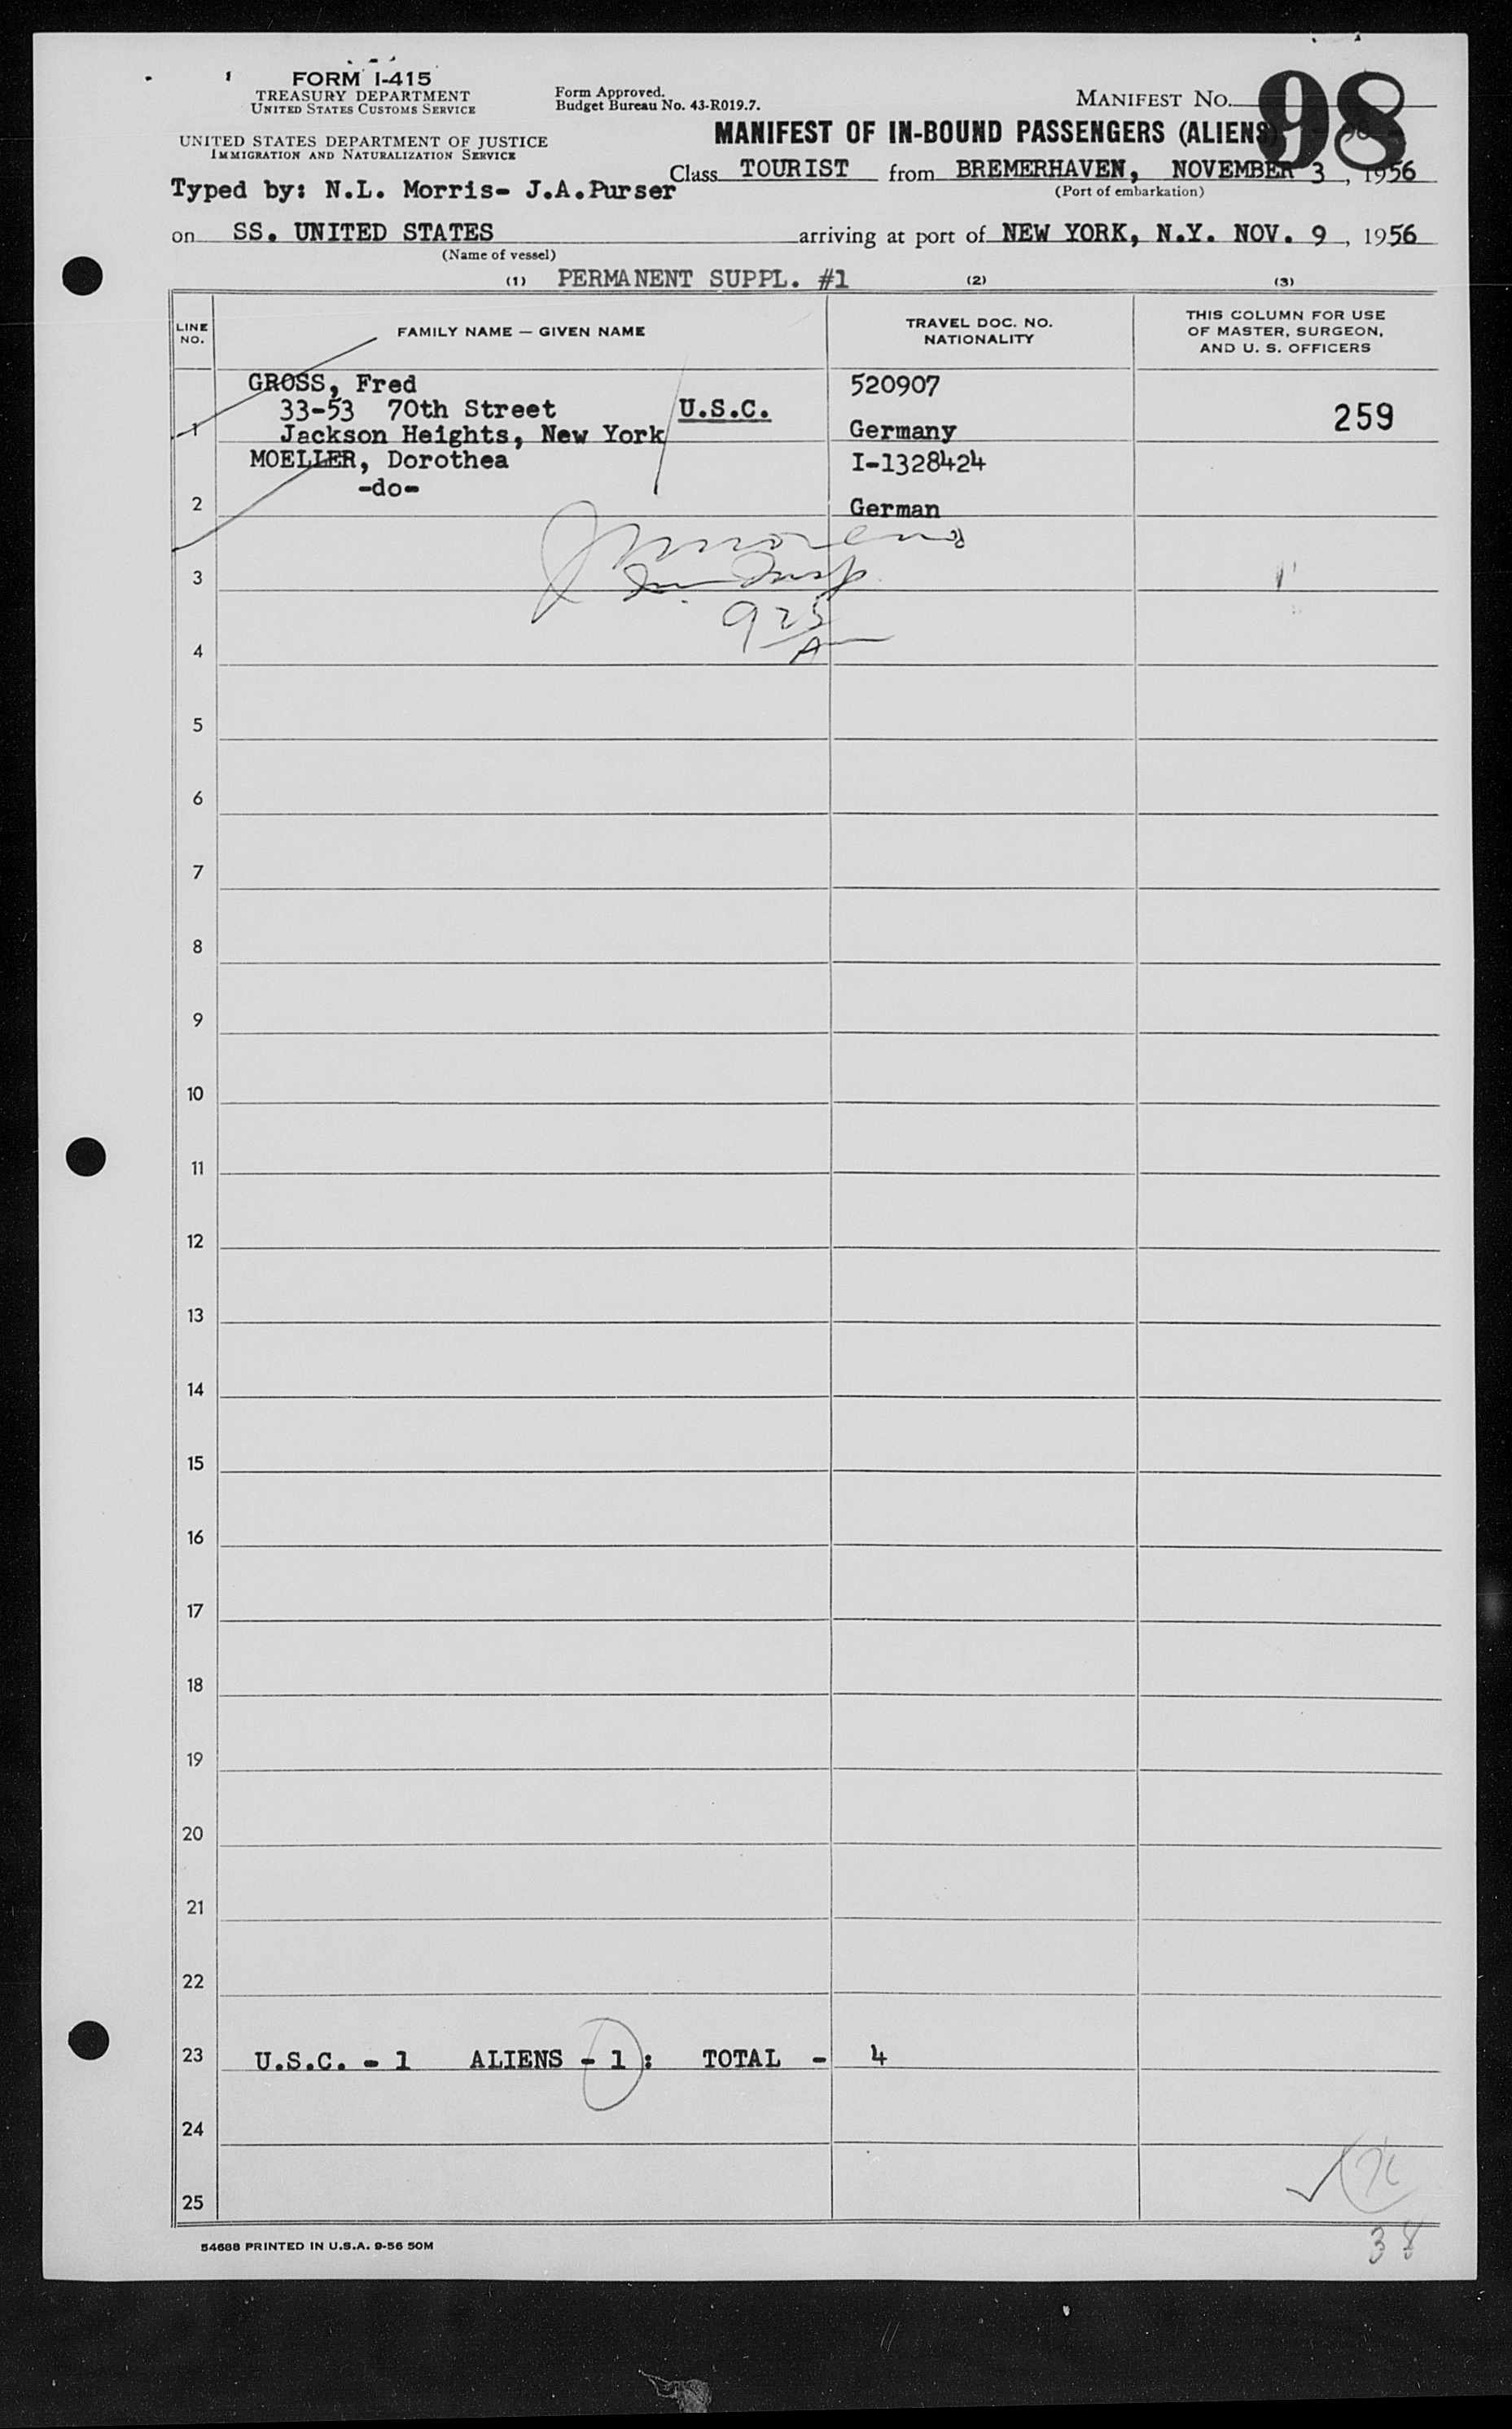 FORM I-415
TREASURY DEPARTMENT
UNITED STATES CUSTOMS SERVICE
Form Approved.
Budget Bureau No. 43-R019.7.
MANIFEST NO. 98
UNITED STATES DEPARTMENT OF JUSTICE
IMMIGRATION AND NATURALIZATION SERVICE
MANIFEST OF IN-BOUND PASSENGERS (ALIENS)
Class TOURIST from BREMERHAVEN, NOVEMBER 3, 1956
(Port of embarkation)
Typed by: N.L. Morris- J.A.Purser
on SS. UNITED STATES arriving at port of NEW YORK, N.Y. NOV. 9, 1956
(Name of vessel)
(1) PERMANENT SUPPL. #1 (2) (3)
LINE NO. FAMILY NAME — GIVEN NAME TRAVEL DOC. NO. NATIONALITY THIS COLUMN FOR USE OF MASTER, SURGEON, AND U. S. OFFICERS
GROSS, Fred 520907
33-53 70th Street U.S.C. 259
1 Jackson Heights, New York Germany
MOELLER, Dorothea I-1328424
-do-
2 German
3
925
A
4
5
6
7
8
9
10
11
12
13
14
15
16
17
18
19
20
21
22
23 U.S.C. - 1 ALIENS - 1: TOTAL - 4
24
25
54688 PRINTED IN U.S.A. 9-56 50M
38